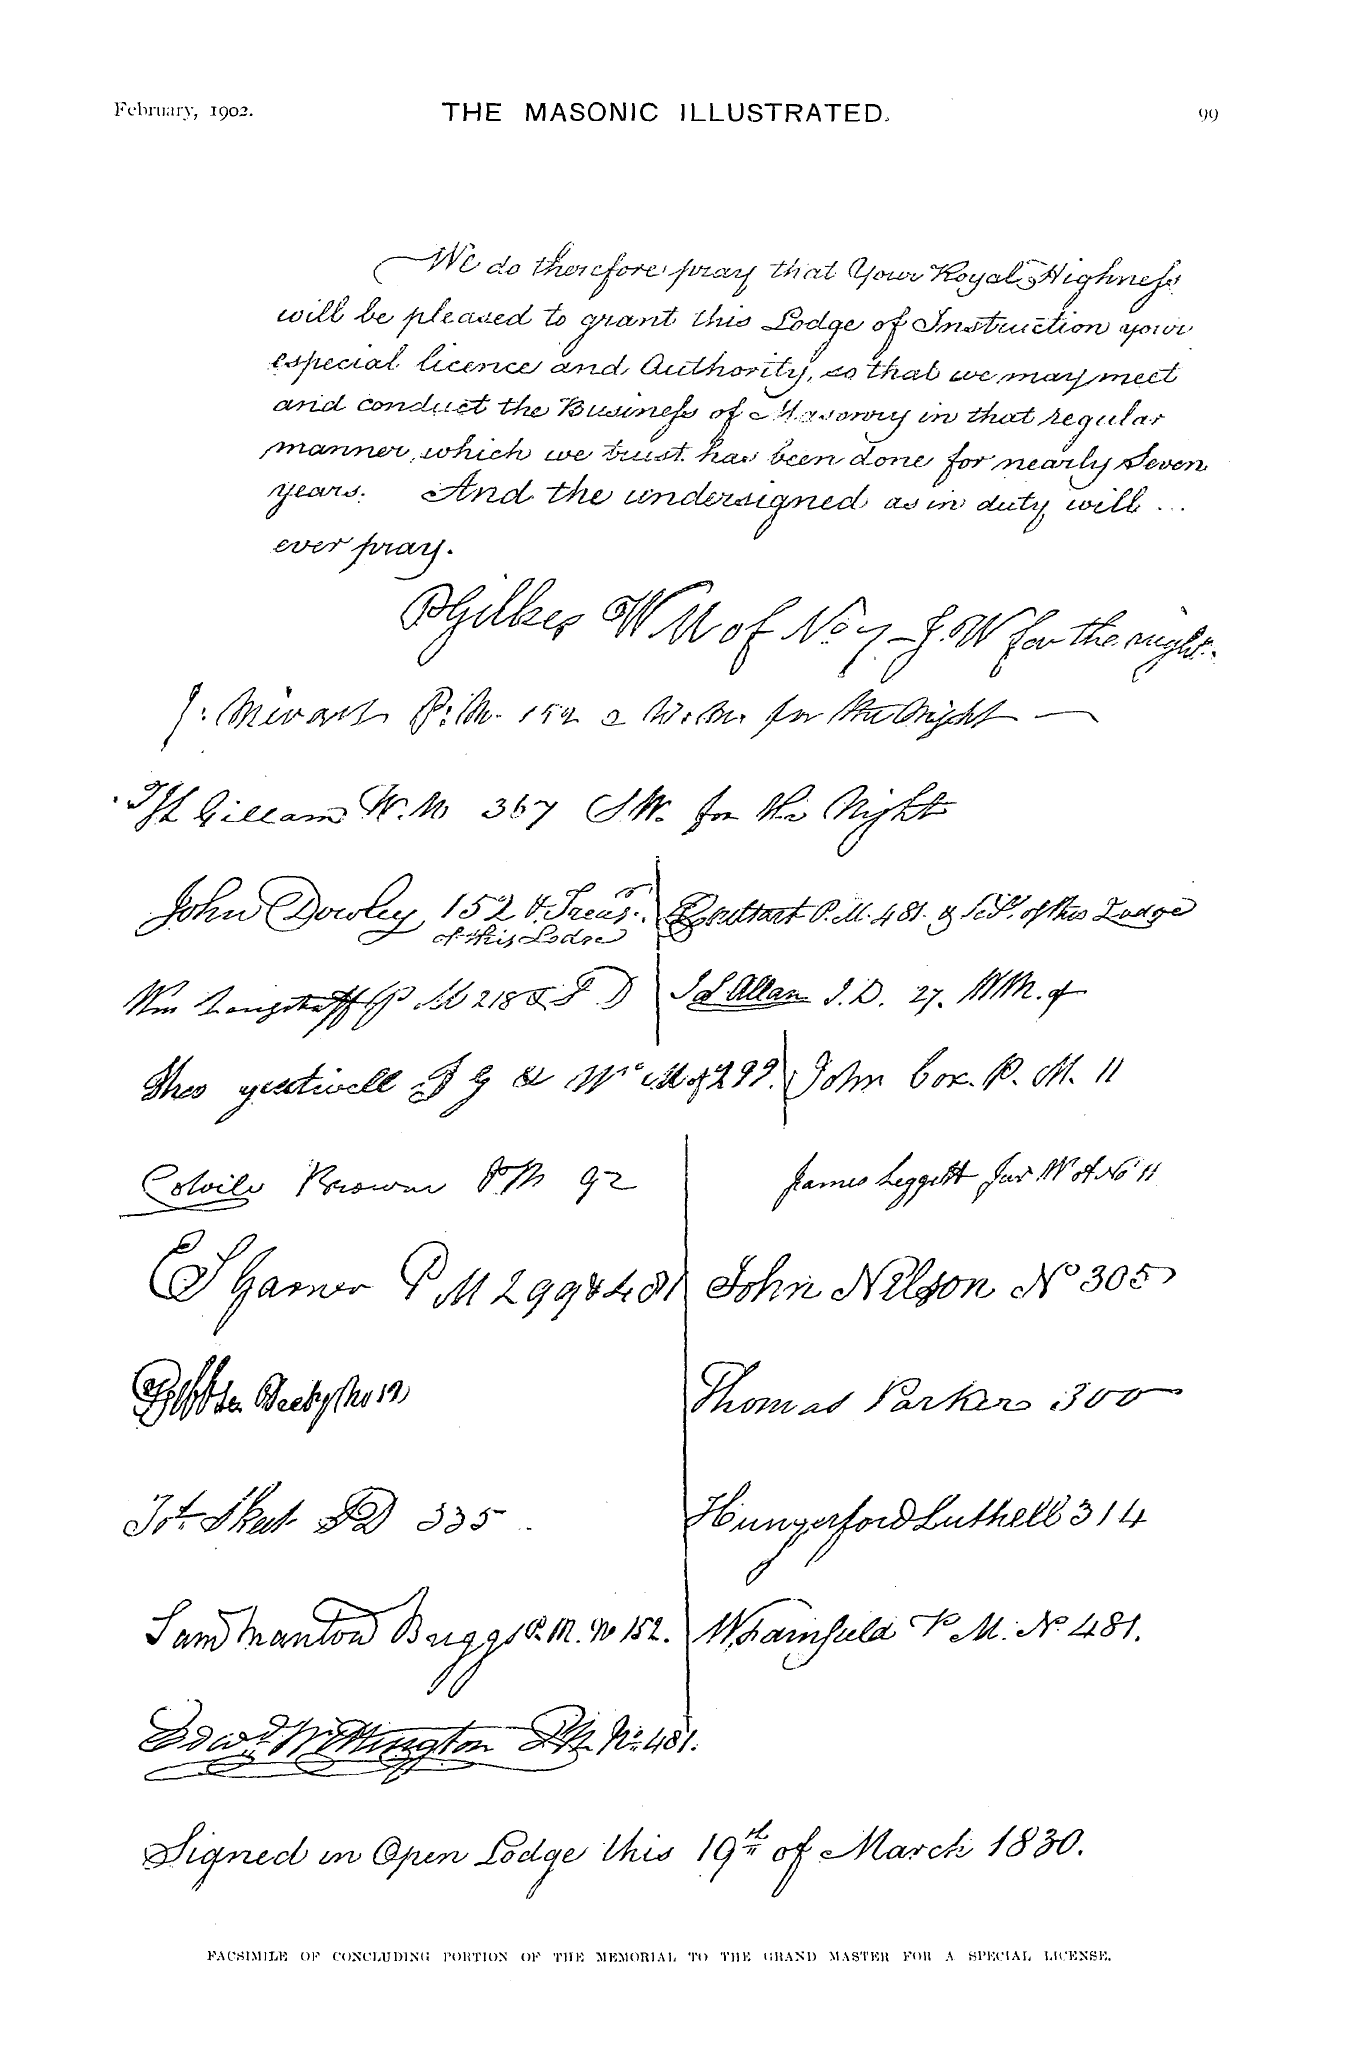 February, 1902.
THE MASONIC ILLUSTRATED.
99
We do therefore pray that Your Royal Highness
will be pleased to grant this Lodge of Instruction your
especial licence and Authority, so that we may meet
and conduct the Business of Masonry in that regular
manner, which we trust has been done for nearly Seven
years. And the undersigned as in duty will ...
ever pray.
P Gilkes W M of No 7 – J. W for the night.
J: Mivart P: M. 152 W: M. for the Night —
Gillam W. M 367 S W. for the Night
John Dowley 152 & Treasr.
of this Lodge
P. M. 481. & Secy. of this Lodge
Wm Longstaff P M 218 & J D
Allan J. D. 27. WM. of
Thos J G & Wc. M of 299.
John Cox. P. M. 11
Colvile Browne P M 92
James Leggett Jur W of No 11
E S Garner P M 299 & 481
John Nelson No 305
No 12
Thomas Parker 300
335
Hungerford Luthell 314
Saml Manton Buggs P. M. No 152.
W. P M. No. 481.
Edwd. Wittington P M. No. 481.
Signed in Open Lodge this 19th of March 1830.
FACSIMILE OF CONCLUDING PORTION OF THE MEMORIAL TO THE GRAND MASTER FOR A SPECIAL LICENSE.